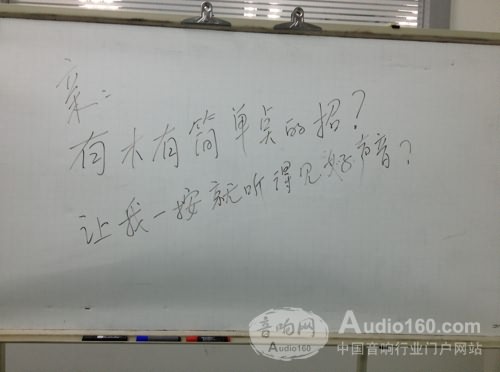 亲：
有木有简单点的招？
让我一按就听得见好声音？
音响网
Audio160
Audio160.com
中国音响行业门户网站